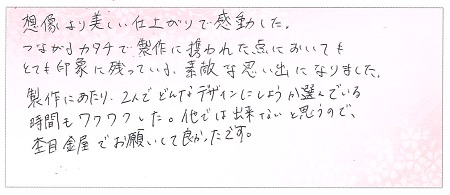 想像より美しい仕上がりで感動した。
つながるカタチで製作に携われた点においても
とても印象に残っている、素敵な思い出になりました。
製作にあたり、2人でどんなデザインにしようか選んでいる
時間もワクワクした。他では出来ないと思うので、
杢目金屋でお願いして良かったです。